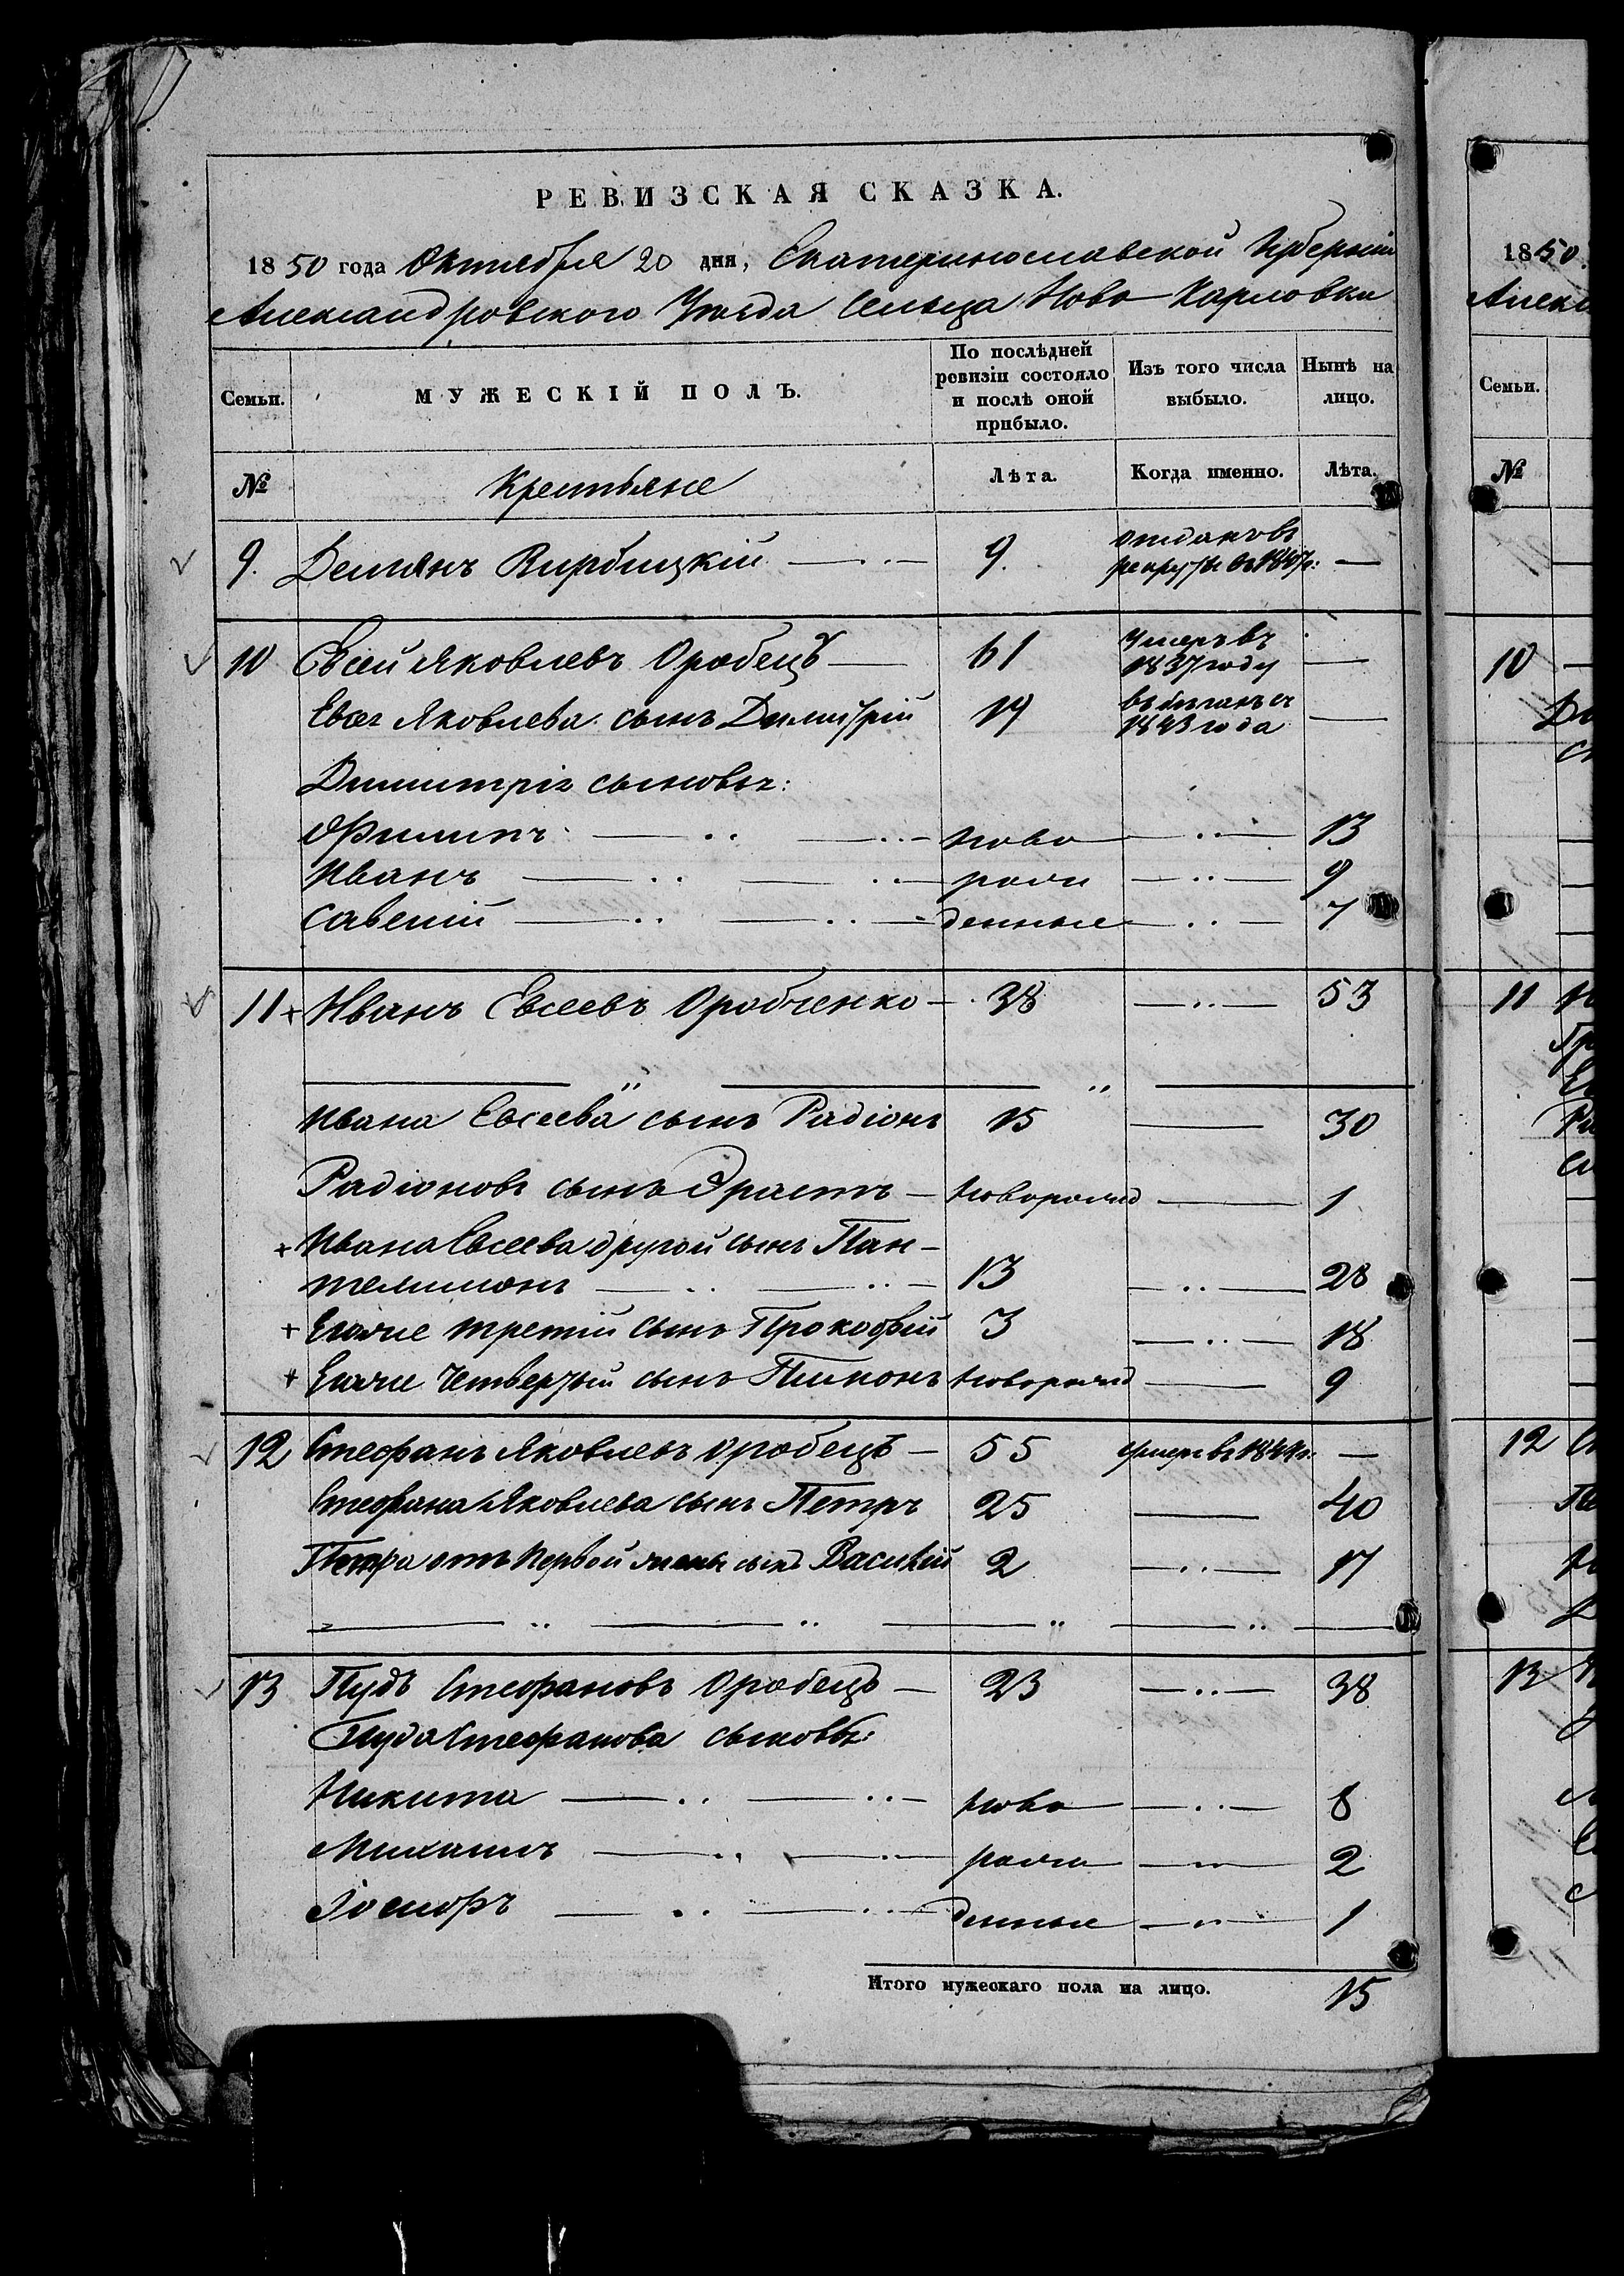 РЕВИЗСКАЯ СКАЗКА.
1850 года Октября 20 дня, Екатеринославской Губернии
Александровского Уезда Сельца Ново Карловки
Семьи. МУЖЕСКІЙ ПОЛЪ. По послѣдней ревизіи состояло и послѣ оной прибыло. Изъ того числа выбыло. Нынѣ на лицо.
№ Крестьяне Лѣта. Когда именно. Лѣта.
9. Демянъ Вирбицкій 9. отданъ въ рекруты въ —
10 Евсей Яковлевъ Оробецъ — 61 умеръ въ 1837 году —
Евсея Яковлева сынъ Димитрій 19 въ бегахъ с 1843 года —
Димитрія сыновья:
Филипъ ново 13
Иванъ рож 9
Савелий денные 7
11 + Иванъ Евсеевъ Оробченко — 38 53
Ивана Евсеева сынъ Радіонъ 15 30
Радіоновъ сынъ Эрастъ — новорожд 1
+ Ивана Евсеева другой сынъ Пан-
телимонъ 13 28
+ Егоже третий сынъ Прокофій 3 18
+ Егоже Четвертый сынъ новорожд 9
12 Стефанъ Яковлевъ Оробецъ — 55 умеръ въ 1844 г: —
Стефана Яковлева сынъ Петръ 25 40
Петра отъ первой жены сынъ Василій 2 17
13 Пудъ Стефановъ Оробецъ — 23 38
Пуда Стефанова сыновья:
Никита ново 8
Михаилъ рож 2
Іосифъ денные 1
Итого мужескаго пола на лицо. 15
1850.
Алекс
Семьи.
№
10
11
12
13